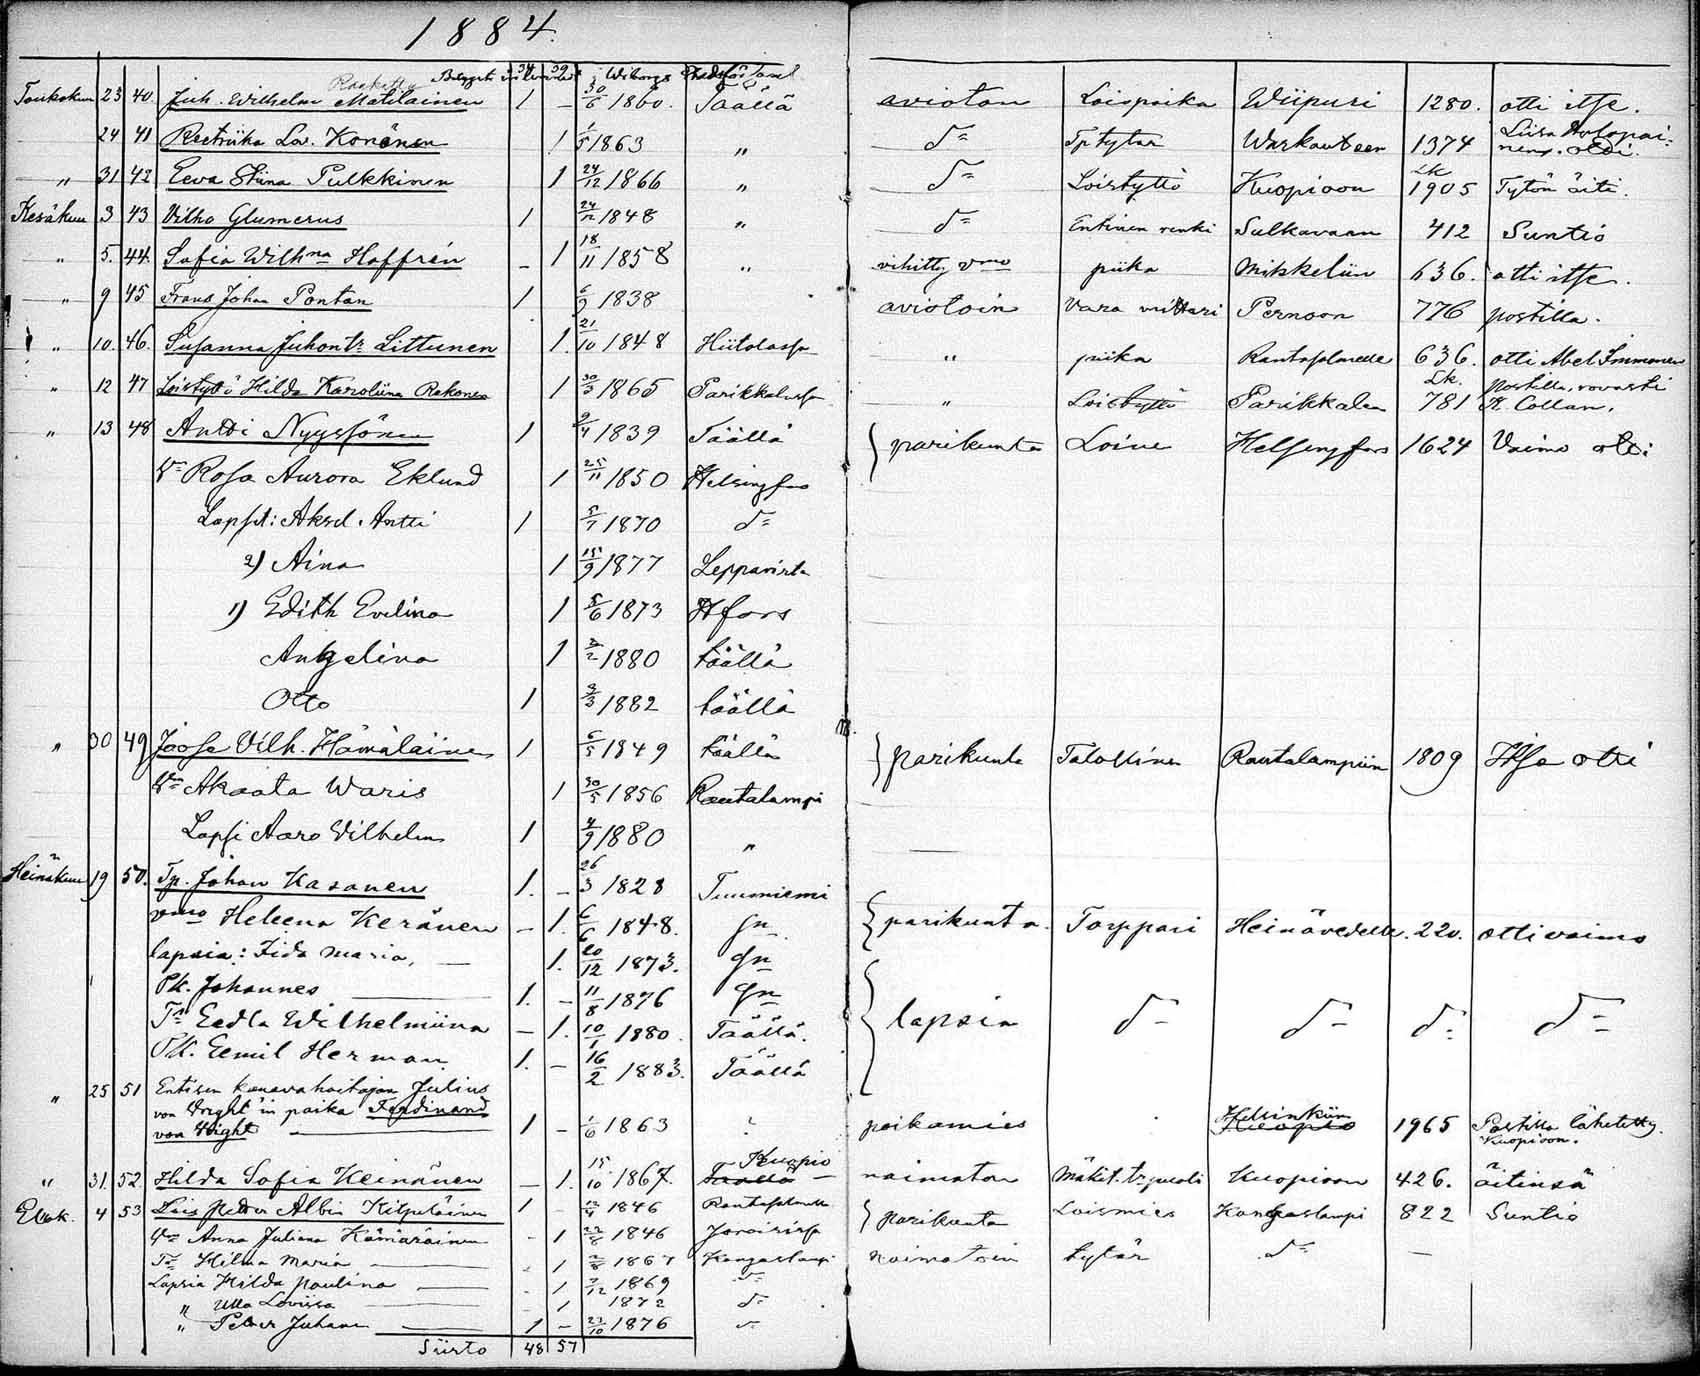 1884.
34 39
Toukokuu 23 40. Juh. Wilhelm Matilainen 1 – 30/6 1860. Täällä avioton Loispoika Wiipuri 1280. otti itse.
24 41 Reetriika Lov. Konönen 1 1/5 1863 „ d:o Tptytär Warkauteen 1374 Liisa
„ 31 42 Eeva Stiina Pulkkinen 1 24/12 1866 „ d:o Loistyttö Kuopioon Lk 1905 Tytön äiti.
Kesäkuu 3 43 Vilho Glumerus 1 24/12 1848 „ d:o Entinen renki Sulkavaan 412 Suntio
„ 5. 44. Sofia Wilhna Hoffrén – 1 18/11 1858 „ vihitty vmo piika Mikkeliin 636. otti itse.
„ 9 45 Frans Johan Pontan 1 6/9 1838 aviotoin Vara vältäri Pernoon 776 postilla.
„ 10. 46. Susanna Juhontr Littunen 1. 21/10 1848 Hiitolassa „ piika Rantasalmelle 636. otti Abel Immonen
„ 12 47 Loistyttö Hilda Karoliina Rekonen 1 30/3 1865 Parikkalassa „ Loistyttö Parikkalan Lk. 781 postilla, rovasti K. Collan.
„ 13 48 Antti Nyyssönen 1 9/4 1839 Täällä } parikunta Loine Helsingfors 1624 Vaimo otti
Vmo Rosa Aurora Eklund 1 25/11 1850 Helsingfors
Lapset: Aksel Antti 1 5/7 1870 d:o
2) Aina 1 15/9 1877 Leppävirta
1) Edith Evelina 1 5/6 1873 Hfors
Angelina 1 2/2 1880 täällä
Otto 1 2/3 1882 täällä
„ 30 49 Joose Vilh. Hämäläinen 1 6/5 1849 täällä } parikunta Talollinen Rautalampiin 1809 Itse otti
Vmo Akaata Waris 1 30/5 1856 Rautalampi
Lapsi Aaro Vilhelm 1 4/9 1880 „
Heinäkuu 19 50. Tp. Johan Kasanen 1. – 26/3 1828 Tuusniemi
vmo Heleena Keränen – 1. 6/6 1848. Gn { parikunta. Torppari Heinävedelle. 220. otti vaimo
lapsia: Iida Maria, — 1. 20/12 1873. Gn
Pk. Johannes — 1. – 11/8 1876 Gn
Tr Eedla Wilhelmiina – 1. 10/1 1880. Täällä. { lapsia d:o d:o d:o d:o
Pk. Eemil Herman 1. – 16/2 1883. Täällä
„ 25 51 Entisen kanavahoitajan Julius
von Wright'in poika Ferdinand
von Wright — 1 – 1/6 1863 ? poikamies Helsinkiin Kuopio 1965 Postilla lähetetty Kuopioon.
„ 31. 52. Hilda Sofia Heinänen – 1. 15/10 1867. Kuopio Täällä naimaton Mäkit. tr puoli Kuopioon 426. äitinsä
Elok. 4 53 Lois Petter Albin Kilpeläinen 1 – 1846 Rantasalmella } parikunta Loismies Kangaslampi 822 Suntio
Vmo Anna Juliana Kämäräinen – 1 22/8 1846 Joroisissa
Tr Hilma Maria — – 1 2/8 1867 Kangaslampi naimatoin tytär d:o –
Lapsia Hilda Paulina — – 1 7/12 1869 d:o
„ Ulla Loviisa — – 1 1872 d:o
„ Petter Juhani — 1 – 23/10 1876 d:o
Siirto 48 57